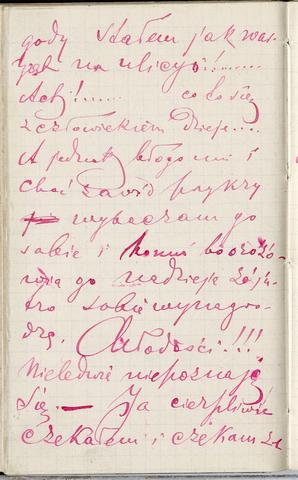 gody stałem jak war-
jat na ulicy!!......
Ach!...... co to się
z człowiekiem dzieje....
A jednak błogo mi i
choć zawód przykry
wybaczam go
sobie i
go nadzieja że ju-
tro sobie wynagro-
dzę. Młodości!!!
Nieledwie niepoznaję
się. — Ja cierpliwie
czekałem i czekam za